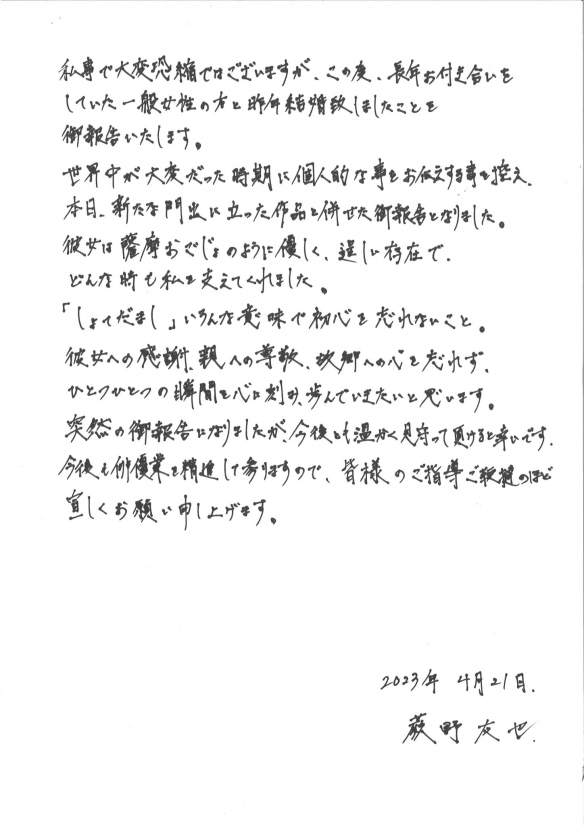 私事で大変恐縮ではございますが、この度、長年お付き合いを
していた一般女性の方と昨年結婚致しましたことを
御報告いたします。
世界中が大変だった時期に個人的な事をお伝えする事を控え、
本日、新たな門出に立った作品と併せた御報告となりました。
彼女は薩摩おごじょのように優しく、逞しい存在で、
どんな時も私を支えてくれました。
「しょてだまし」いろんな意味で初心を忘れないこと。
彼女への感謝、親への尊敬、故郷への心を忘れず、
ひとつひとつの瞬間を心に刻み、歩んでいきたいと思います。
突然の御報告になりましたが、今後とも温かく見守って頂けると幸いです。
今後も俳優業を精進して参りますので、皆様のご指導ご鞭撻のほど
宜しくお願い申し上げます。
2023年 4月21日.
蕨野友也.